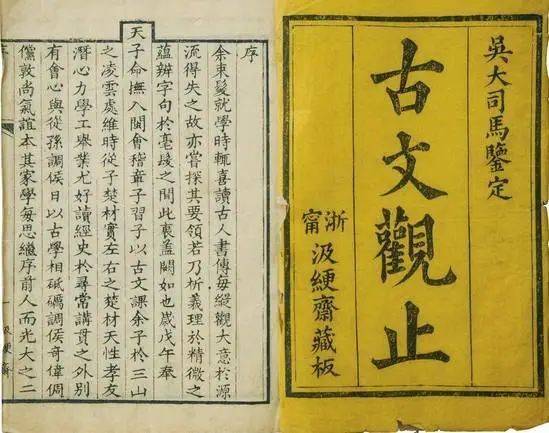 吳大司馬鑑定
古文觀止
浙甯
汲綆齋藏板
序
余束髮就學時輒喜讀古人書傳每縱觀大意於源
流得失之故亦嘗探其要領若乃析義理於精微之
蘊辨字句於毫髮之間此衷蓋闕如也歲戊午奉
天子命撫八閩會稽章子習子以古文課余子於三山
之凌雲處維時從子楚材實左右之楚材天性孝友
潛心力學工舉業尤好讀經史於尋常講貫之外別
有會心與從孫調侯日以古學相砥礪調侯奇偉倜
儻敦尚氣誼本其家學每思繼序前人而光大之二
一 汲綆齋